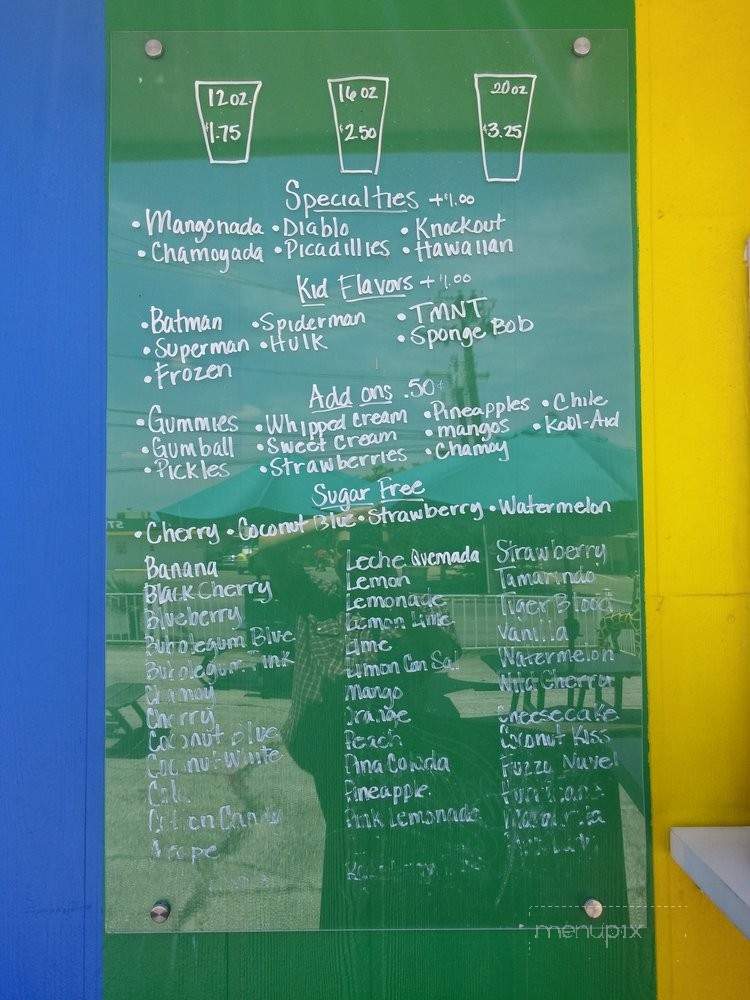 12 oz. 16 oz 20 oz
$1.75 $2.50 $3.25
Specialties +$1.00
• Mangonada • Diablo • Knockout
• Chamoyada • Picadillies • Hawaiian
Kid Flavors + $1.00
• Batman • Spiderman • TMNT
• Superman • Hulk • Sponge Bob
• Frozen
Add ons .50¢
• Gummies • Whipped Cream • Pineapples • Chile
• Gumball • Sweet Cream • mangos • Kool-Aid
• Pickles • Strawberries • Chamoy
Sugar Free
• Cherry • Coconut Blue • Strawberry • Watermelon
Banana Leche Quemada Strawberry
Black Cherry Lemon Tamarindo
Blueberry Lemonade Tiger Blood
Bubblegum Blue Lemon Lime Vanilla
Bubblegum Pink Lime Watermelon
Chamoy Limon Con Sal Wild Cherry
Cherry Mango Cheesecake
Coconut Blue Orange Coconut Kiss
Coconut White Peach Fuzzy Navel
Pina Colada Hurricane
Cotton Candy Pineapple Margarita
Grape Pink Lemonade
menupix